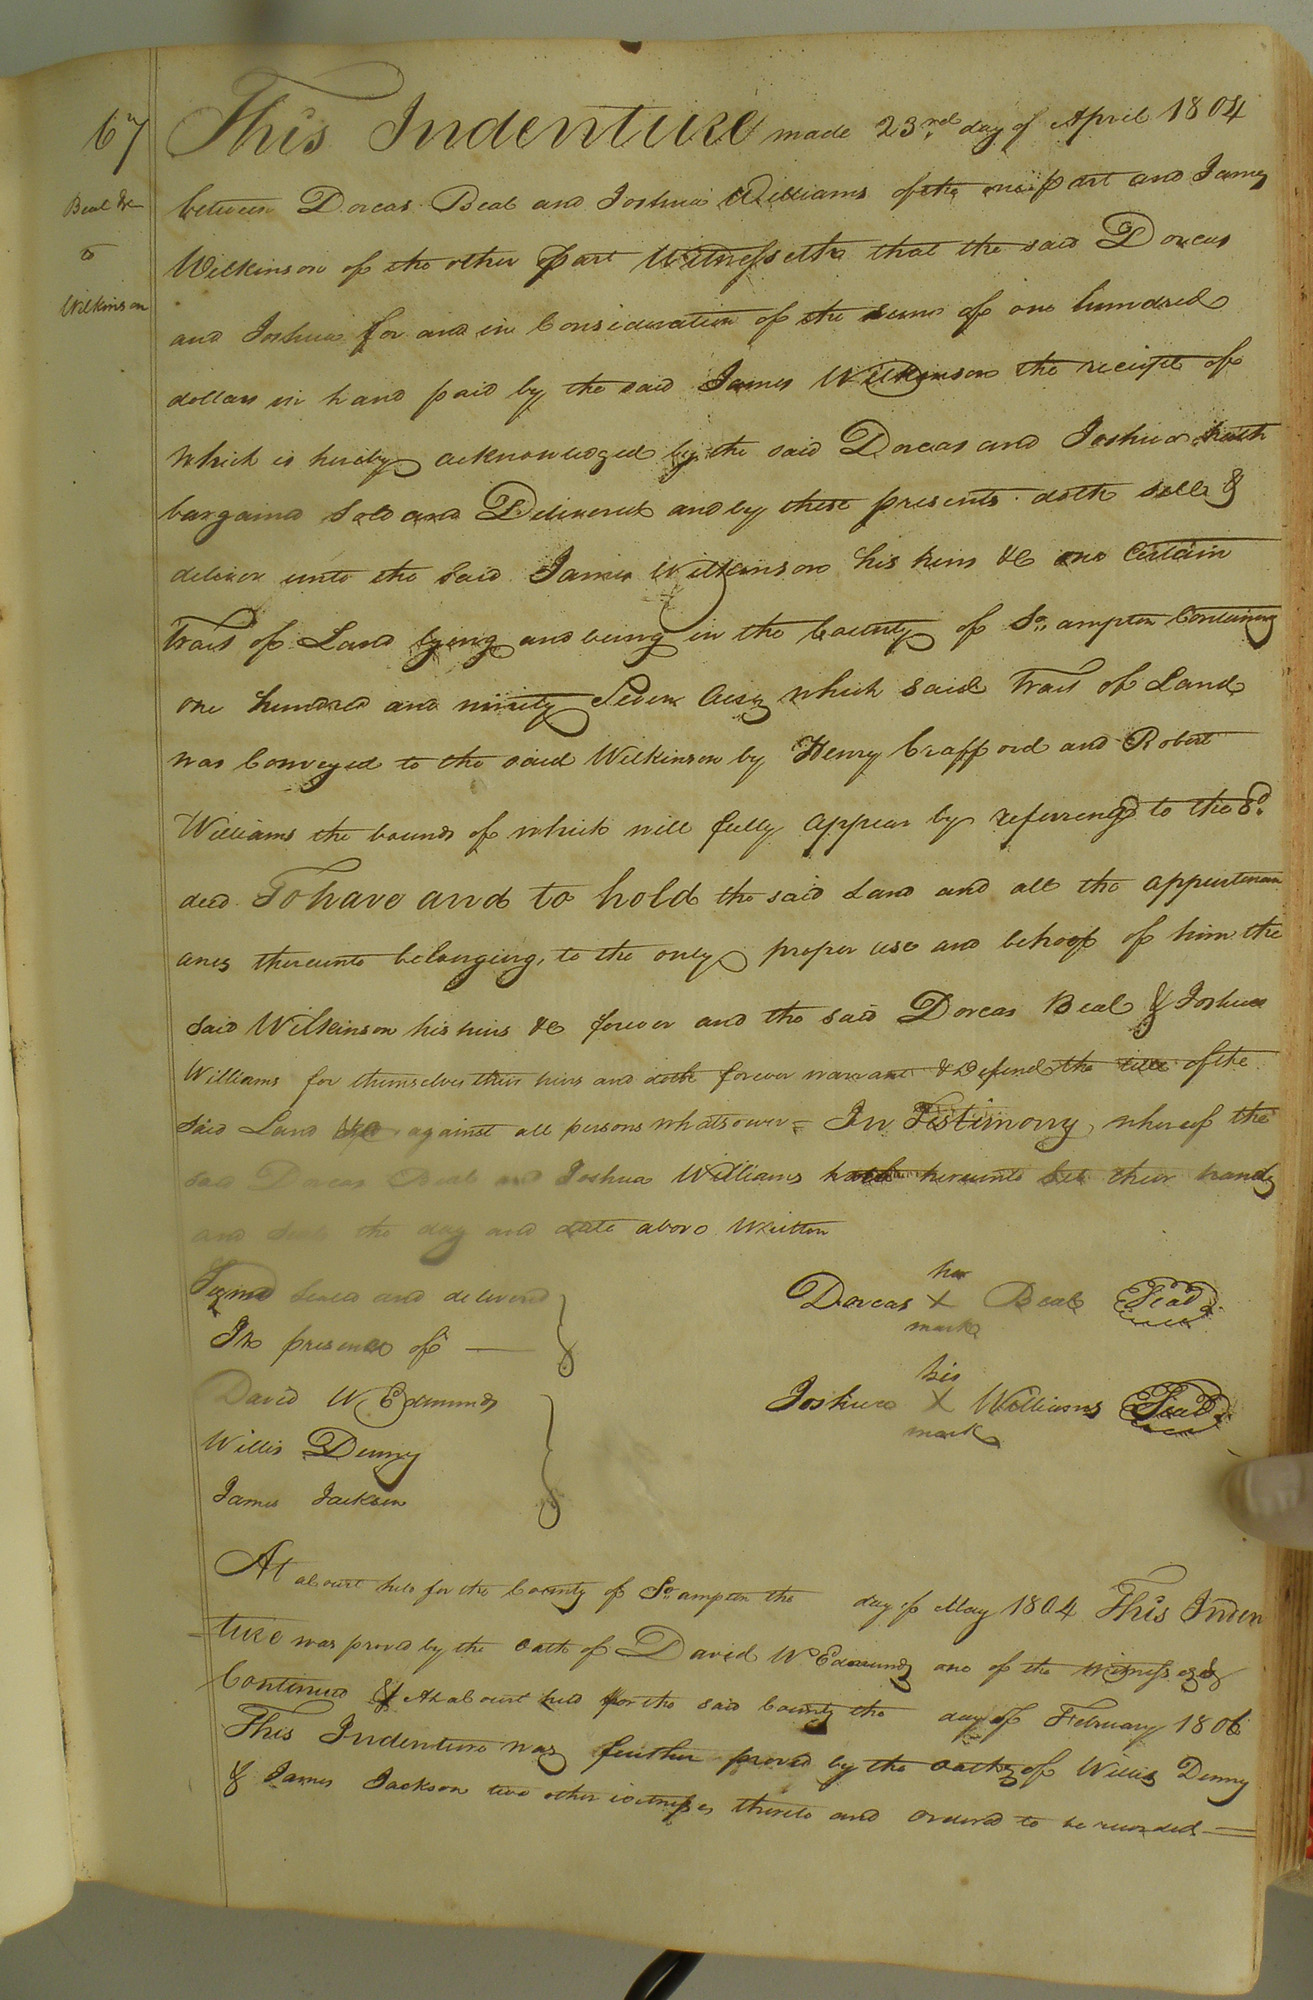 67
Beal &c
to
Wilkinson
This Indenture made 23rd day of April 1804
between Dorcas Beal and Joshua Williams of the one part and James
Wilkinson of the other part Witnesseth that the said Dorcas
and Joshua for and in Consideration of the sum of one hundred
dollars in hand paid by the said James Wilkinson the receipt of
which is hereby acknowledged by the said Dorcas and Joshua hath
bargaind Sold and Delivered and by these presents doth sell &
deliver unto the said James Wilkinson his heirs &c one Certain
Tract of Land lying and being in the County of So.ampton Containing
one hundred and ninety Seven Acres which said Tract of Land
was Conveyed to the said Wilkinson by Henry Crafford and Robert
Williams the bounds of which will fully appear by referring to the sd.
deed To have and to hold the said Land and all the appurtenan
ances thereunto belonging, to the only proper use and behoof of him the
said Wilkinson his heirs &c forever and the said Dorcas Beal & Joshua
Williams for themselves their heirs and doth forever warrant & Defend the title of the
said Land against all persons whatsoever = In Testimony whereof the
said Dorcas Beal and Joshua Williams hath hereunto set their hands
and seals the day and date above Written
Signd Seald and deliverd
In presence of
Dorcas her X mark Beal Seal
David W Edmunds
Willis Denny
James Jackson
Joshua his X mark Williams Seal
At a Court held for the County of So.ampton the day of May 1804 This Inden
ture was proved by the oath of David W Edmunds one of the witnesses &
Continued & At a Court held for the said County the day of February 1806
This Indenture was further proved by the oaths of Willis Denny
& James Jackson two other witnesses thereto and ordered to be recorded